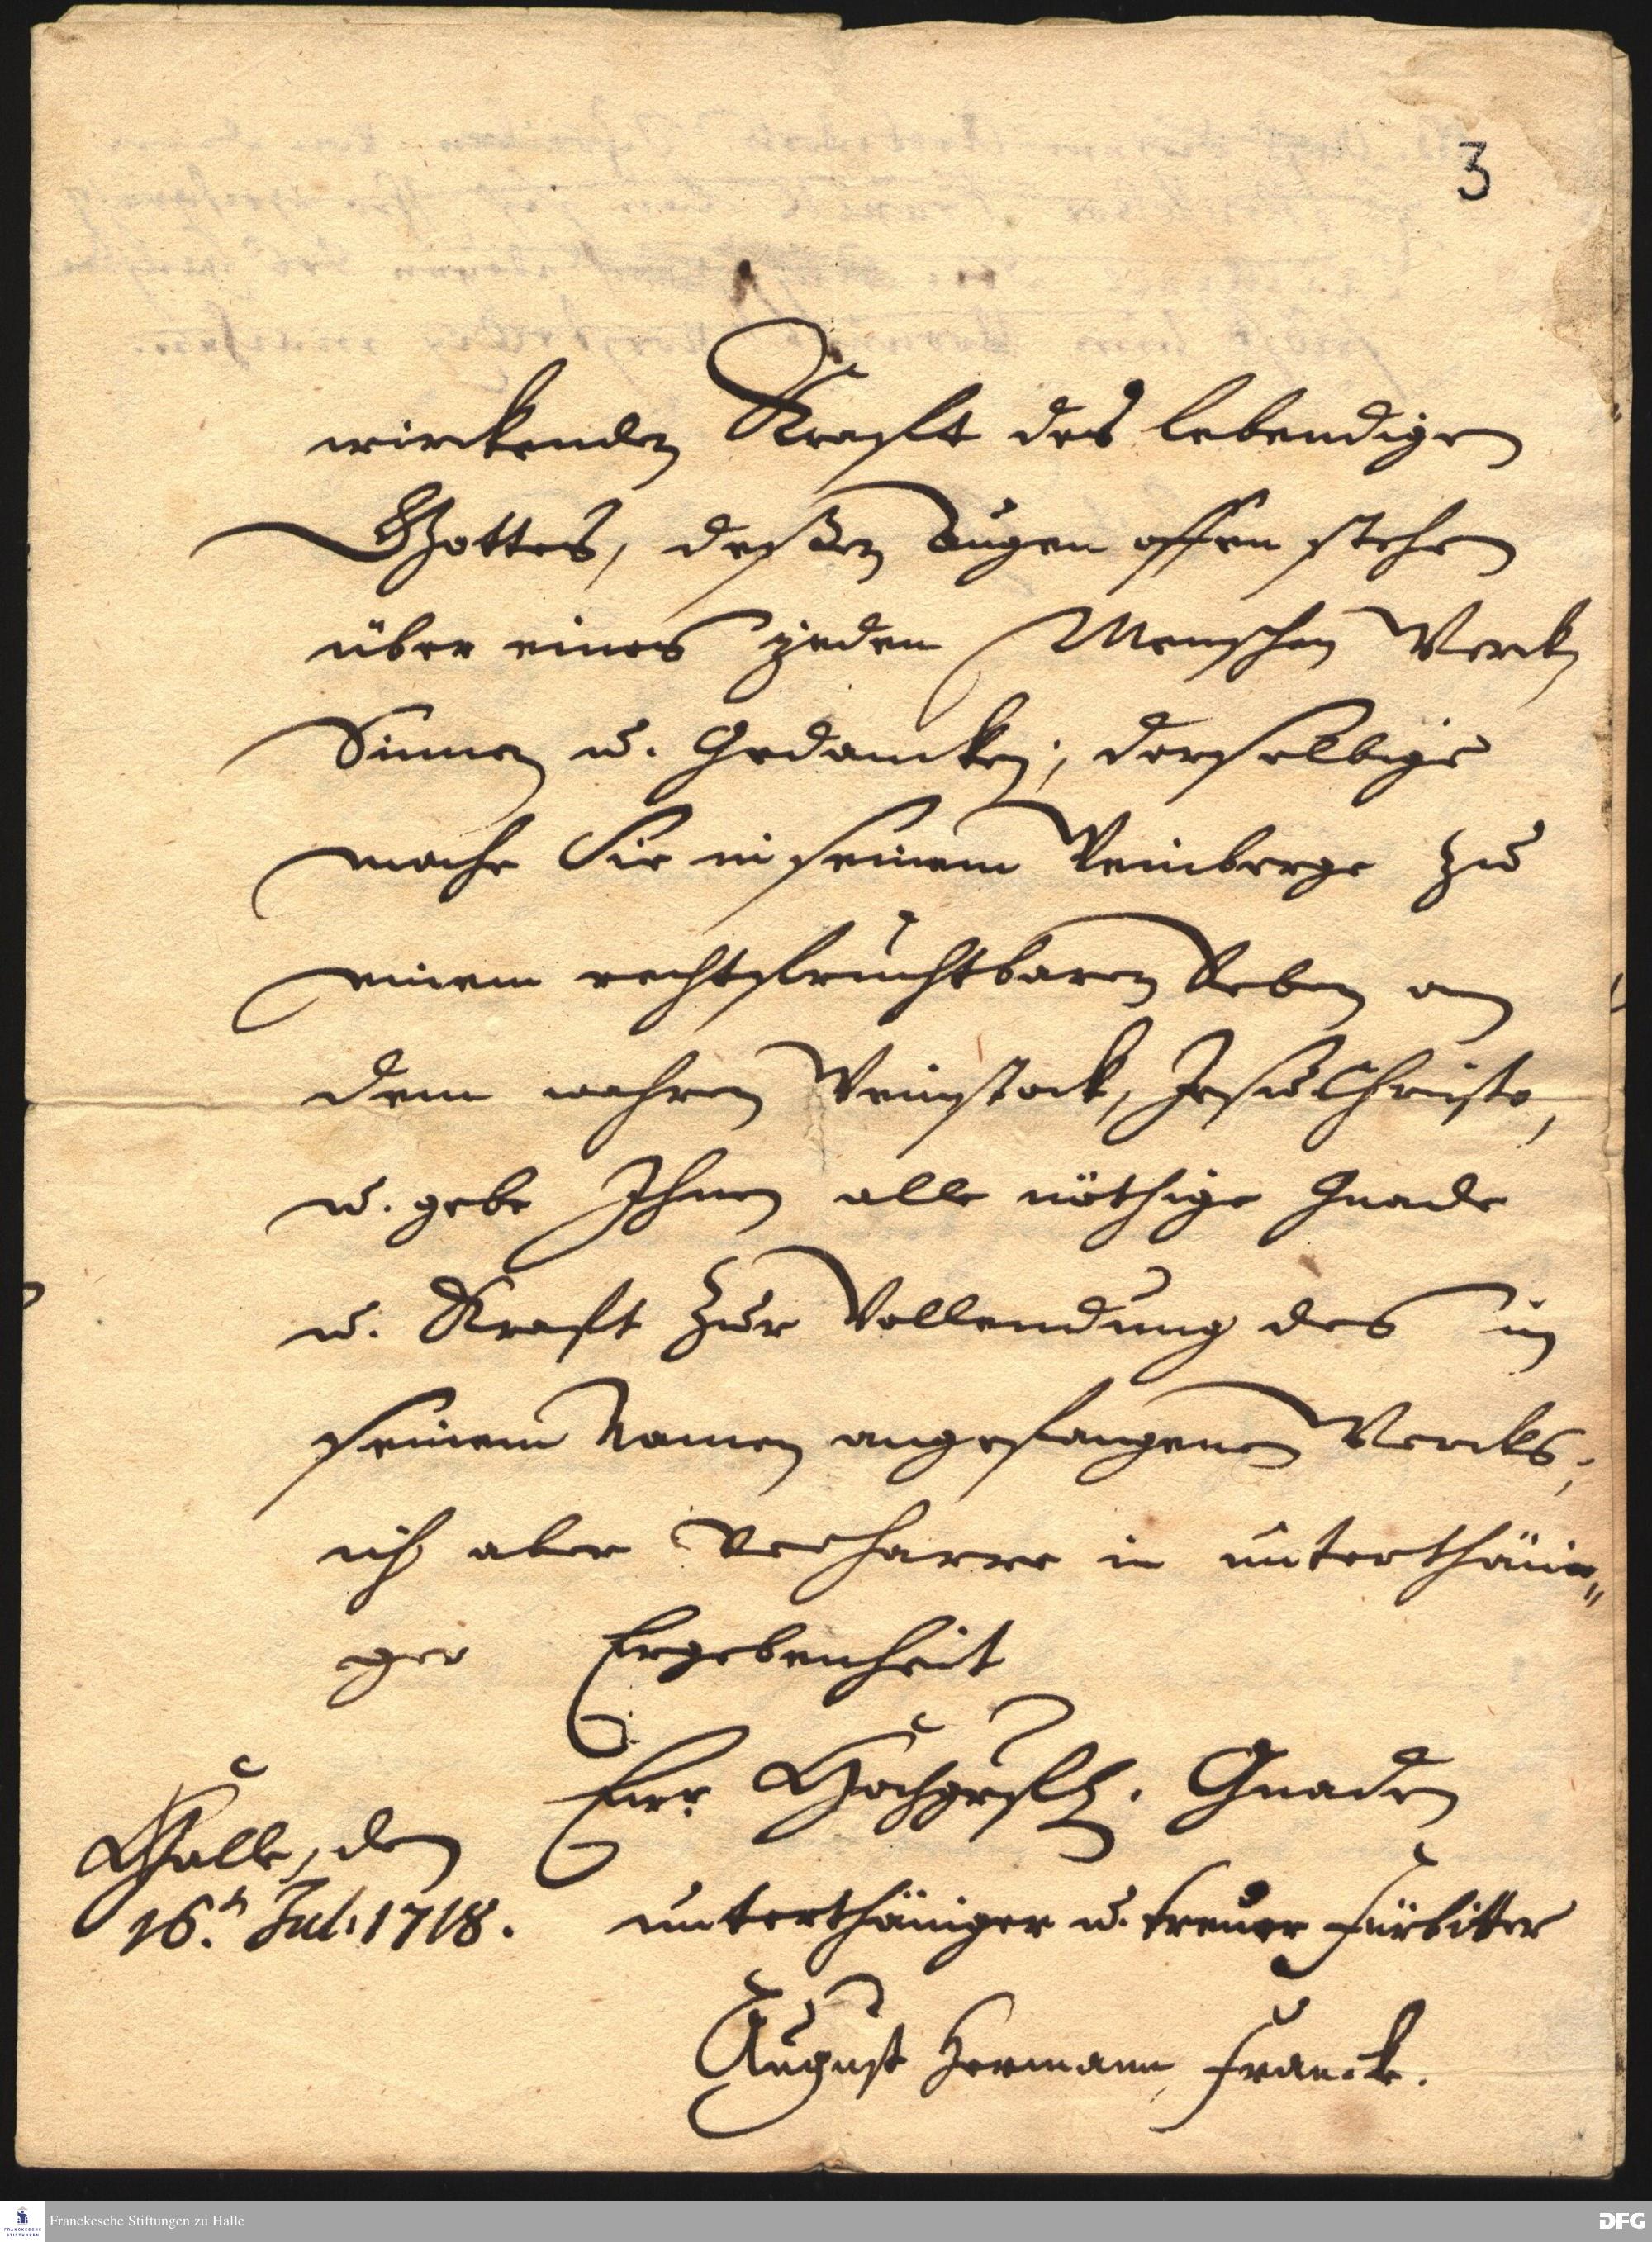 3
wirckenden Krafft des lebendigen
Gottes, deßen Augen offen stehen
über eines jeden Menschen Werck,
Sinnen u. Gedancken; derselbige
mache Sie in seinem Weinberge zu
einem recht fruchtbaren Reben an
dem wahren Weinstock, Jesu Christo,
u. gebe Ihnen alle nöthige Gnade
u. Krafft zur Vollendung des in
seinem Namen angefangenen Wercks;
ich aber verharre in unterthäni-
ger Ergebenheit
Eurr Hochgräfl. Gnaden
Halle, den
16.ⁿ Jul. 1718.
unterthäniger u. treuer Fürbitter
August Hermann Franck.
Franckesche Stiftungen zu Halle
DFG